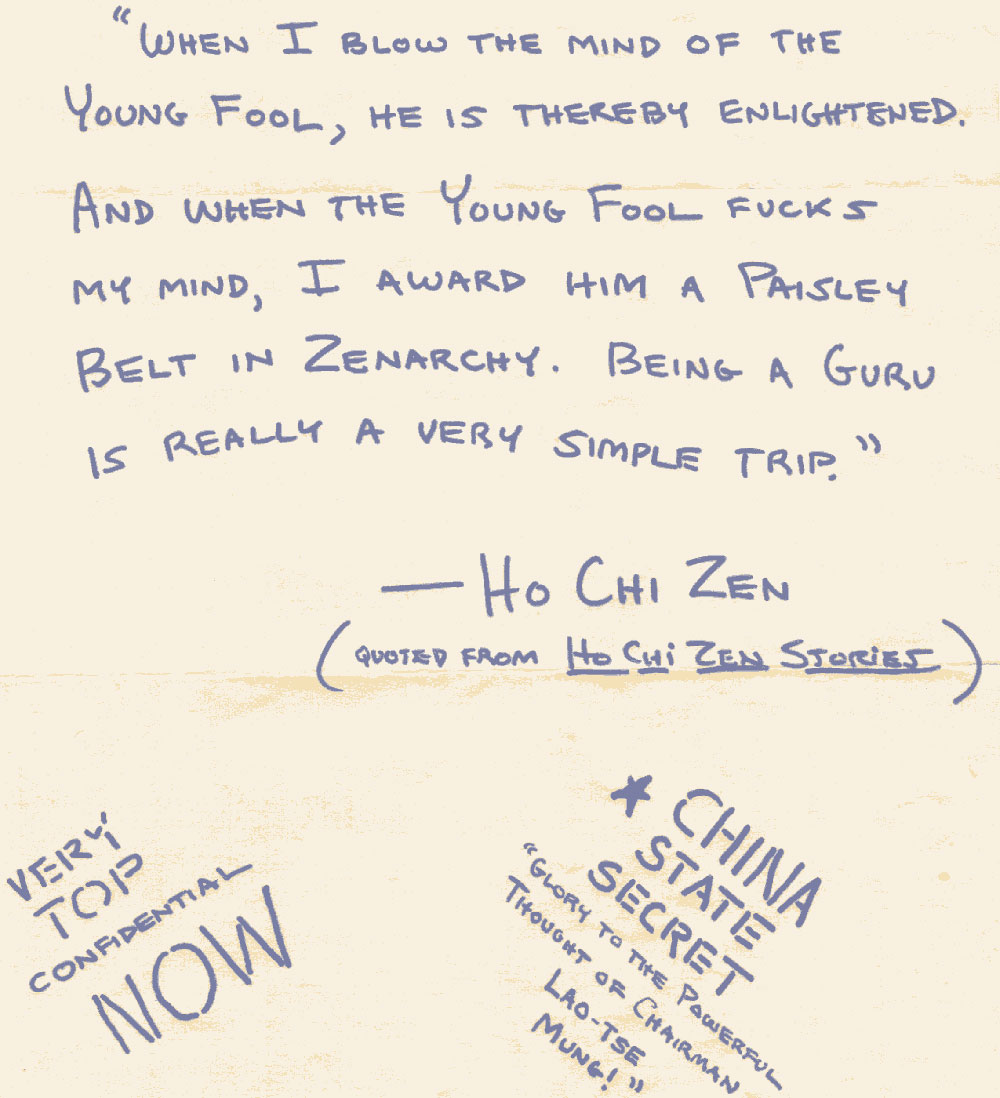 "WHEN I BLOW THE MIND OF THE
YOUNG FOOL, HE IS THEREBY ENLIGHTENED.
AND WHEN THE YOUNG FOOL FUCKS
MY MIND, I AWARD HIM A PAISLEY
BELT IN ZENARCHY. BEING A GURU
IS REALLY A VERY SIMPLE TRIP."
— HO CHI ZEN
(QUOTED FROM HO CHi ZEN STORiES)
VERY
TOP
CONFIDENTIAL
NOW
★ CHINA
STATE
SECRET
"GLORY TO THE POWERFUL
THOUGHT OF CHAIRMAN
LAO-TSE
MUNG!"